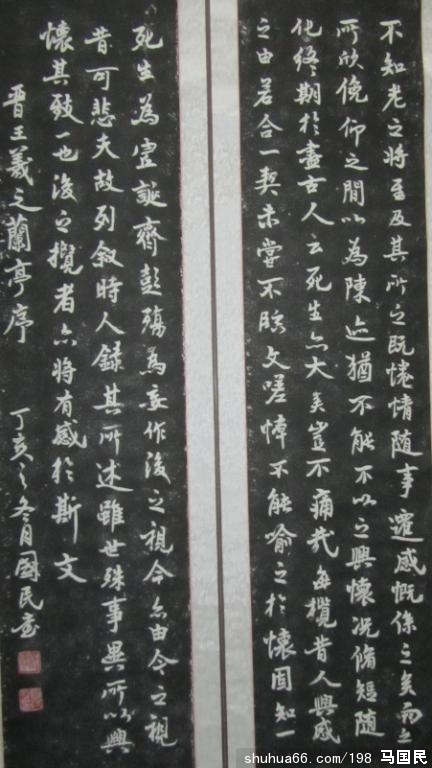 不知老之將至及其所之既惓情隨事遷感慨係之矣向之
所欣俛仰之間以為陳迹猶不能不以之興懷況脩短隨
化終期於盡古人云死生亦大矣豈不痛哉每攬昔人興感
之由若合一契未嘗不臨文嗟悼不能喻之於懷固知一
死生為虛誕齊彭殤為妄作後之視今亦由今之視
昔可悲夫故列敘時人錄其所述雖世殊事異所以興
懷其致一也後之攬者亦將有感於斯文
晋王羲之蘭亭序 丁亥之冬月國民書
shuhua66.com/198 马国民